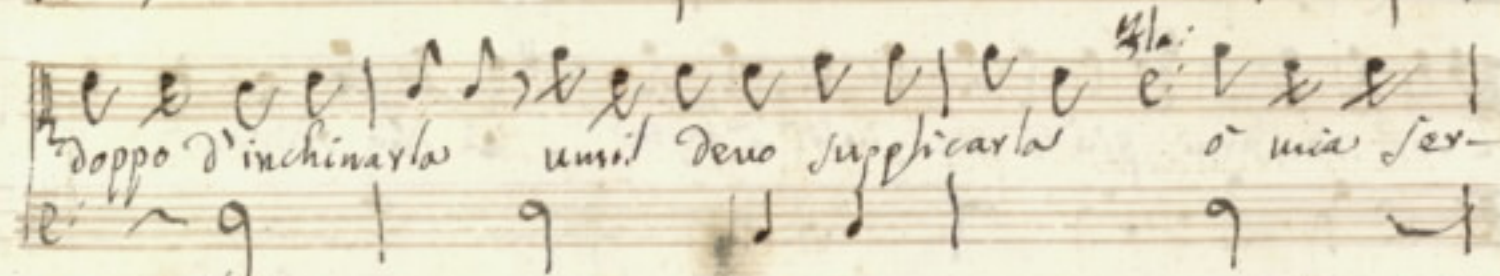 doppo d'inchinarla umil devo supplicarla ò mia ser-